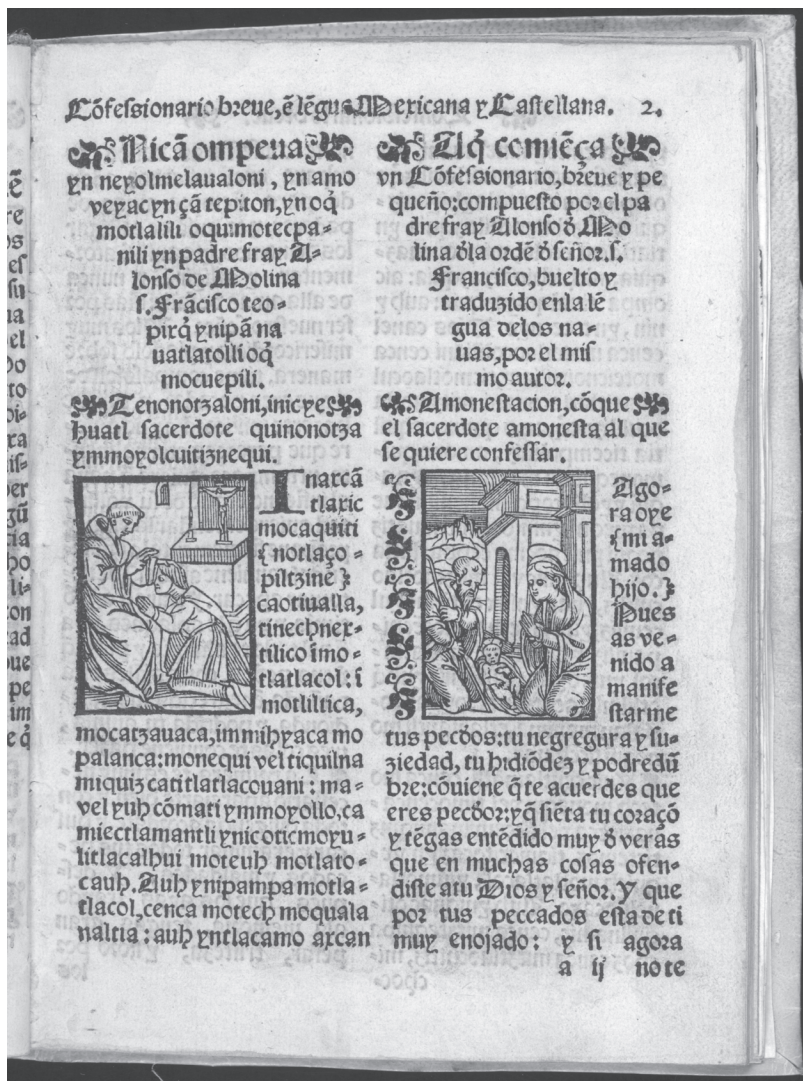 Cõfessionario breue, ẽ lẽgua Mexicana y Castellana. 2.
Nicã ompeua
yn neyolmelaualoni, yn amo
veyac yn çã tepiton, yn oq̃
motlalili oquimotecpa⸗
nili yn padre fray A⸗
lonso de Molina
s. Frãcisco teo⸗
pixq̃ ynipã na
uatlatolli oq̃
mocuepili.
Tenonotzaloni, inic ye
huatl sacerdote quinonotza
ymmoyolcuitiznequi.
INaxcã
tlaxic
mocaquiti
{notlaço⸗
piltzine}
ca otiualla,
tinechnex⸗
tilico ĩmo⸗
tlatlacol: ĩ
motliltica,
mocatzauaca, immihyaca mo
palanca: monequi vel tiquilna
miquiz ca titlatlacouani: ma⸗
vel yuh cõmati ymmoyollo, ca
miectlamantli ynic oticmoyu⸗
litlacalhui moteuh motlato⸗
cauh. Auh ynipampa motla⸗
tlacol, cenca motech moquala
naltia: auh yntlacamo axcan
Aq̃ comiẽça
vn Cõfessionario, breue y pe
queño: compuesto por el pa
dre fray Alonso đ Mo
lina đla ordẽ đ señor. s.
Francisco, buelto y
traduzido enla lẽ
gua delos na⸗
uas, por el mis
mo autor.
Amonestacion, cõque
el sacerdote amonesta al que
se quiere confessar.
Ago⸗
ra oye
{mi a⸗
mado
hijo.}
Pues
as ve⸗
nido a
manife
starme
tus pecđos: tu negregura y su⸗
ziedad, tu hidiõdez y podredũ
bre: cõuiene q̃ te acuerdes que
eres pecđor: yq̃ siẽta tu coraçõ
y tẽgas entẽdido muy đ veras
que en muchas cosas ofen⸗
diste atu Dios y señor. Y que
por tus peccados esta de ti
muy enojado: y si agora
a ij no te